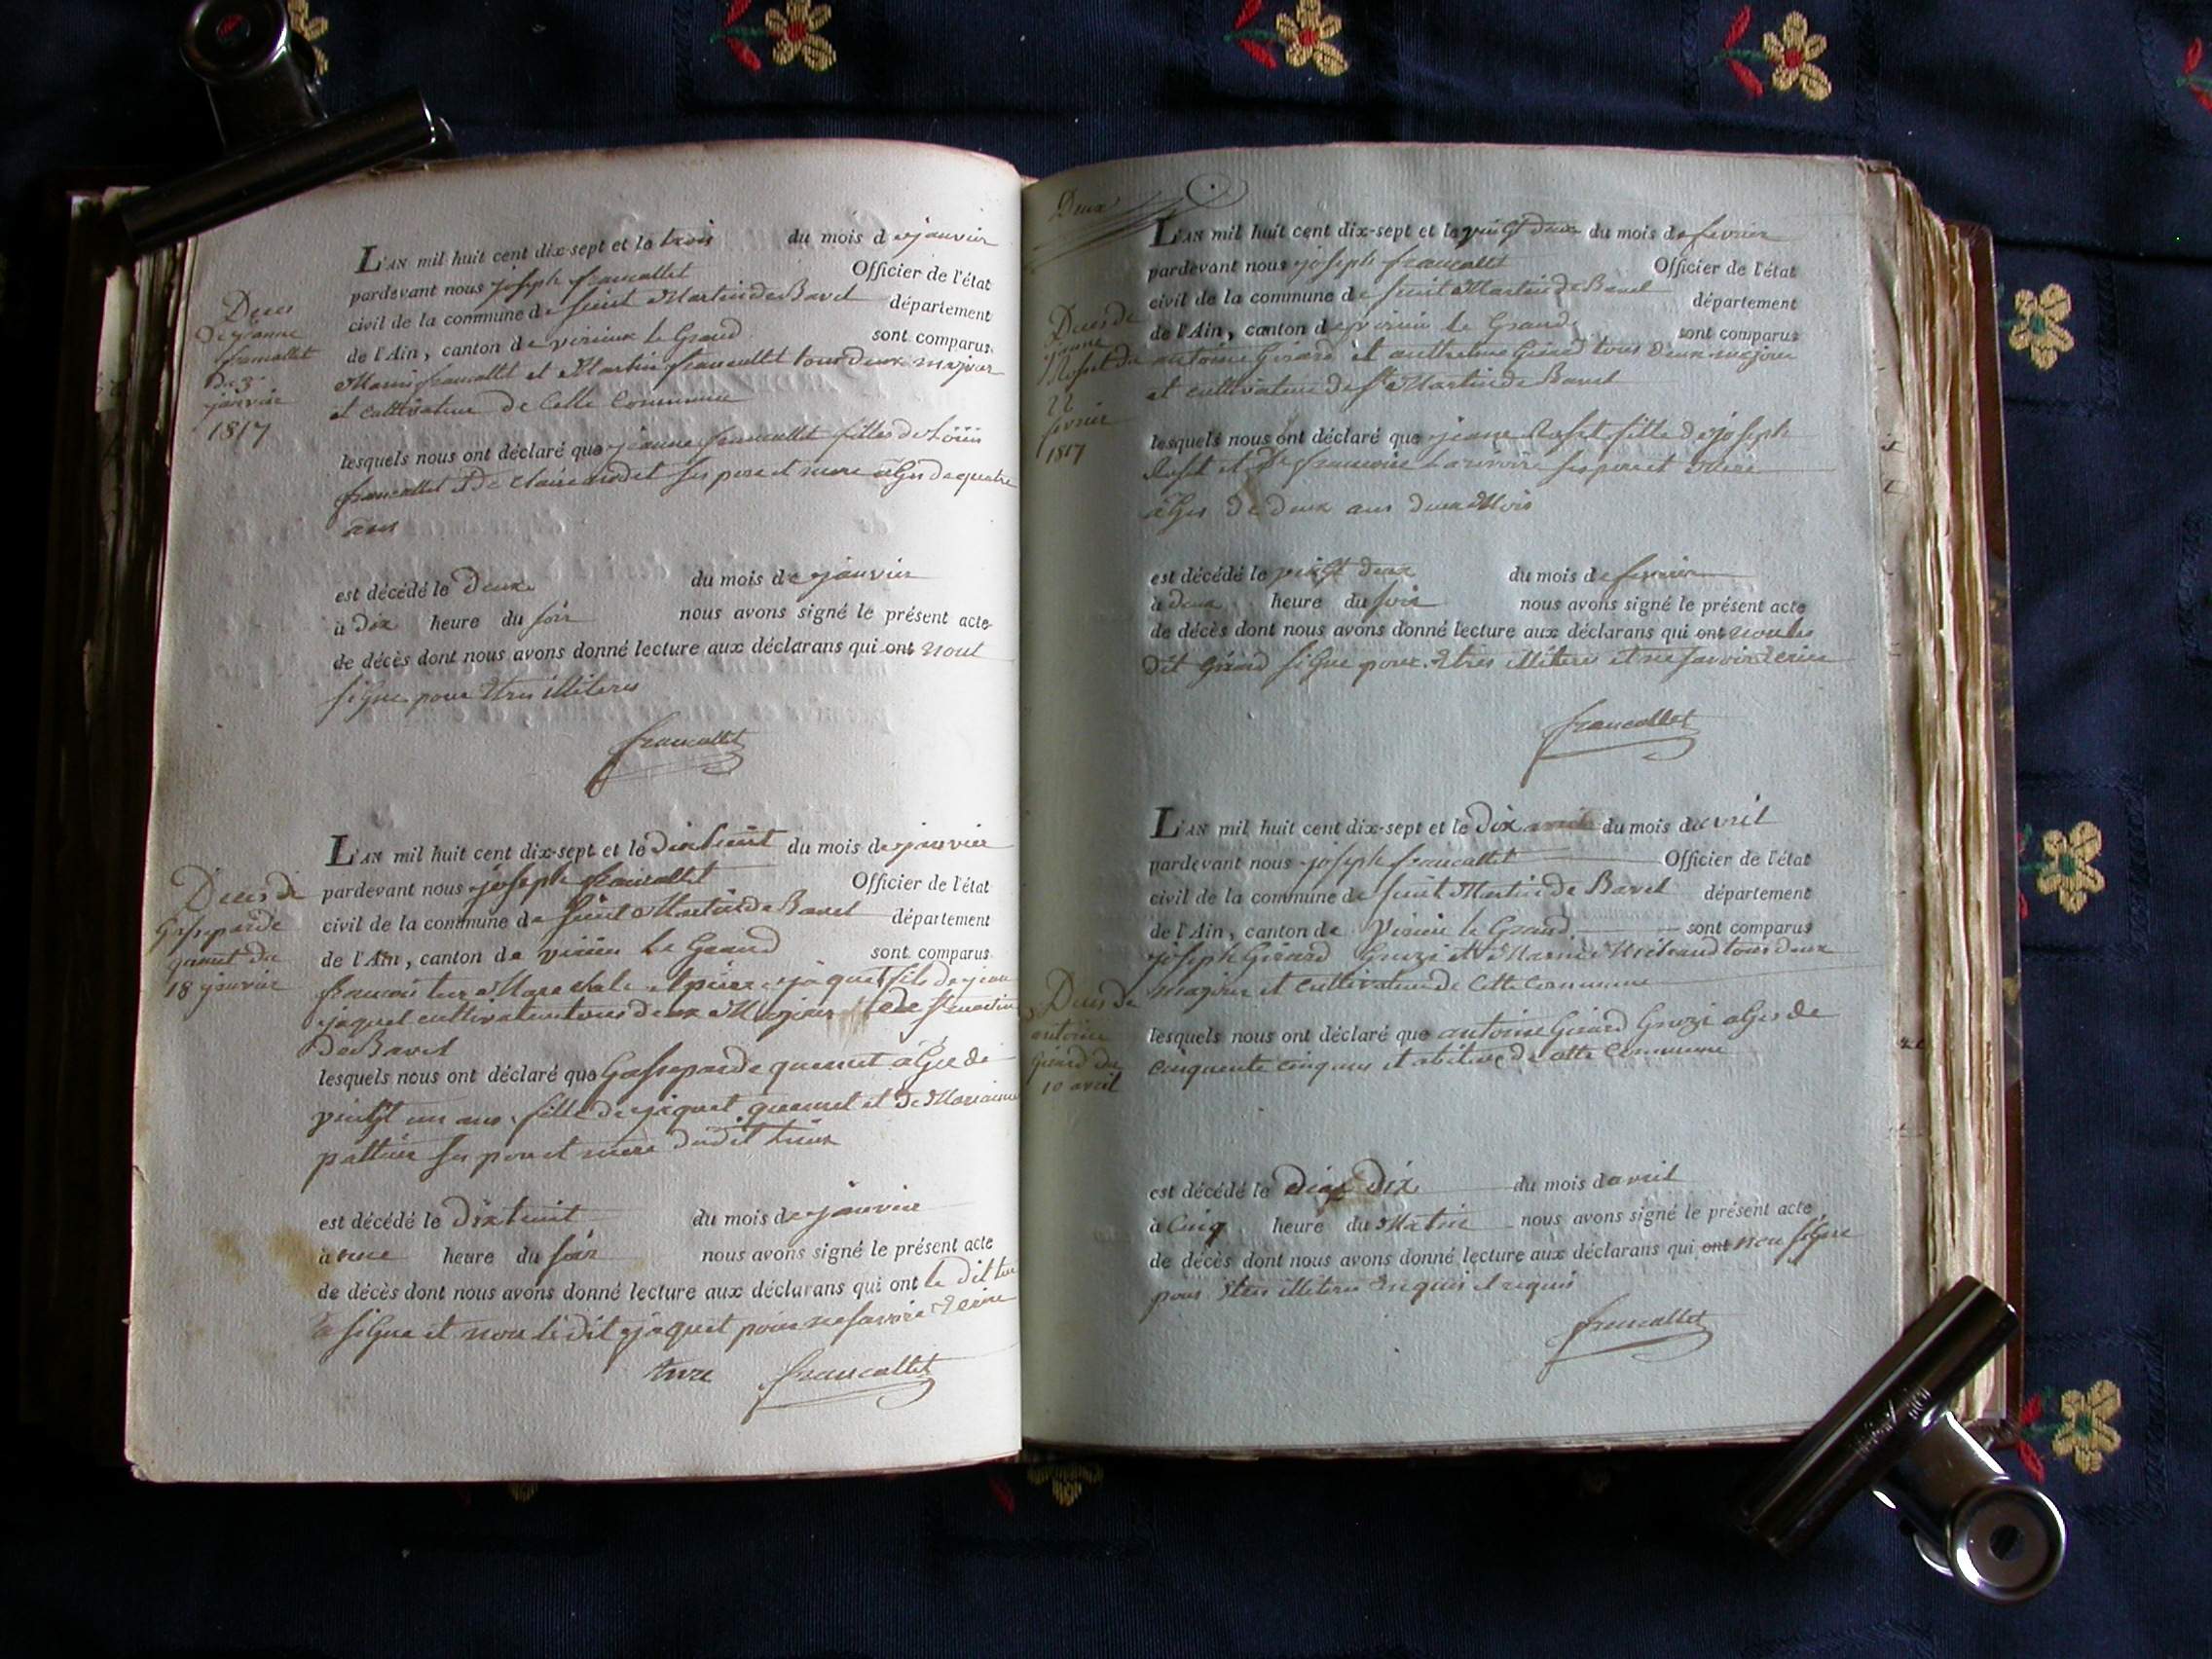 Deces
de jeanne
francallet
du 3
janvier
1817
L'AN mil huit cent dix-sept et le trois du mois de janvier
pardevant nous joseph francallet Officier de l'état
civil de la commune de saint Martin de Bavel département
de l'Ain, canton de virieux le Grand sont comparus
Marin francallet et Martin francallet tous deux majeur
et cultivateur de Cette Commune
lesquels nous ont déclaré que jeanne francallet filles de Loüis
francallet et De Claire ses pere et mere âges de quatre
ans
est décédé le Deux du mois de janvier
à Dix heure du soir nous avons signé le présent acte
de décès dont nous avons donné lecture aux déclarans qui ont nont
signe pour Etres illiteres
francallet
Deces de
Gasseparde
du
18 janvier
L'AN mil huit cent dix-sept et le Dixhuit du mois de janvier
pardevant nous joseph francallet Officier de l'état
civil de la commune de saint Martin de Bavel département
de l'Ain, canton de virieu le Grand sont comparus
francois Marechale et pierre jaquet fils de jean
jaquet cultivateur tous deux Majeurs de St martin
De Bavel
lesquels nous ont déclaré que Gasseparde âgée de
vingt un ans fille de et De Marianne
ses pere et mere dudit Lieux
est décédé le Dixhuit du mois de janvier
à heure du soir nous avons signé le présent acte
de décès dont nous avons donné lecture aux déclarans qui ont le dit
a signe et non le dit jaquet pour ne savoir Ecrire
francallet
Deux
Deces de
jeanne
Roset du
22
fevrier
1817
L'AN mil huit cent dix-sept et le vingt deux du mois de fevrier
pardevant nous joseph francallet Officier de l'état
civil de la commune de saint Martin de Bavel département
de l'Ain, canton de virieu le Grand sont comparus
antoine Girard et anthelme Girard tous deux majeur
et cultivateur de St Martin de Bavel
lesquels nous ont déclaré que jeane Roset fille de joseph
Roset et De francoise ses pere et Mere
âges De deux ans deux Mois
est décédé le vingt deux du mois de fevrier
à deux heure du soir nous avons signé le présent acte
de décès dont nous avons donné lecture aux déclarans qui ont non les
dit Girard signe pour Etres illitere et ne savoir Ecrire
francallet
Deces de
antoine
Girard du
10 avril
L'AN mil huit cent dix-sept et le Dix du mois d'avril
pardevant nous joseph francallet Officier de l'état
civil de la commune de saint Martin de Bavel département
de l'Ain, canton de Virieu le Grand sont comparus
joseph Girard Grozi et Marin tous deux
majeur et cultivateur de Cette Commune
lesquels nous ont déclaré que antoine Girard Grozi âges de
cinquente cinq ans et abitant de cette Commune
est décédé le Dix du mois d'avril
à Cinq heure du Matin nous avons signé le présent acte
de décès dont nous avons donné lecture aux déclarans qui ont non signe
pour Etres illiteres Enquis et requis
francallet